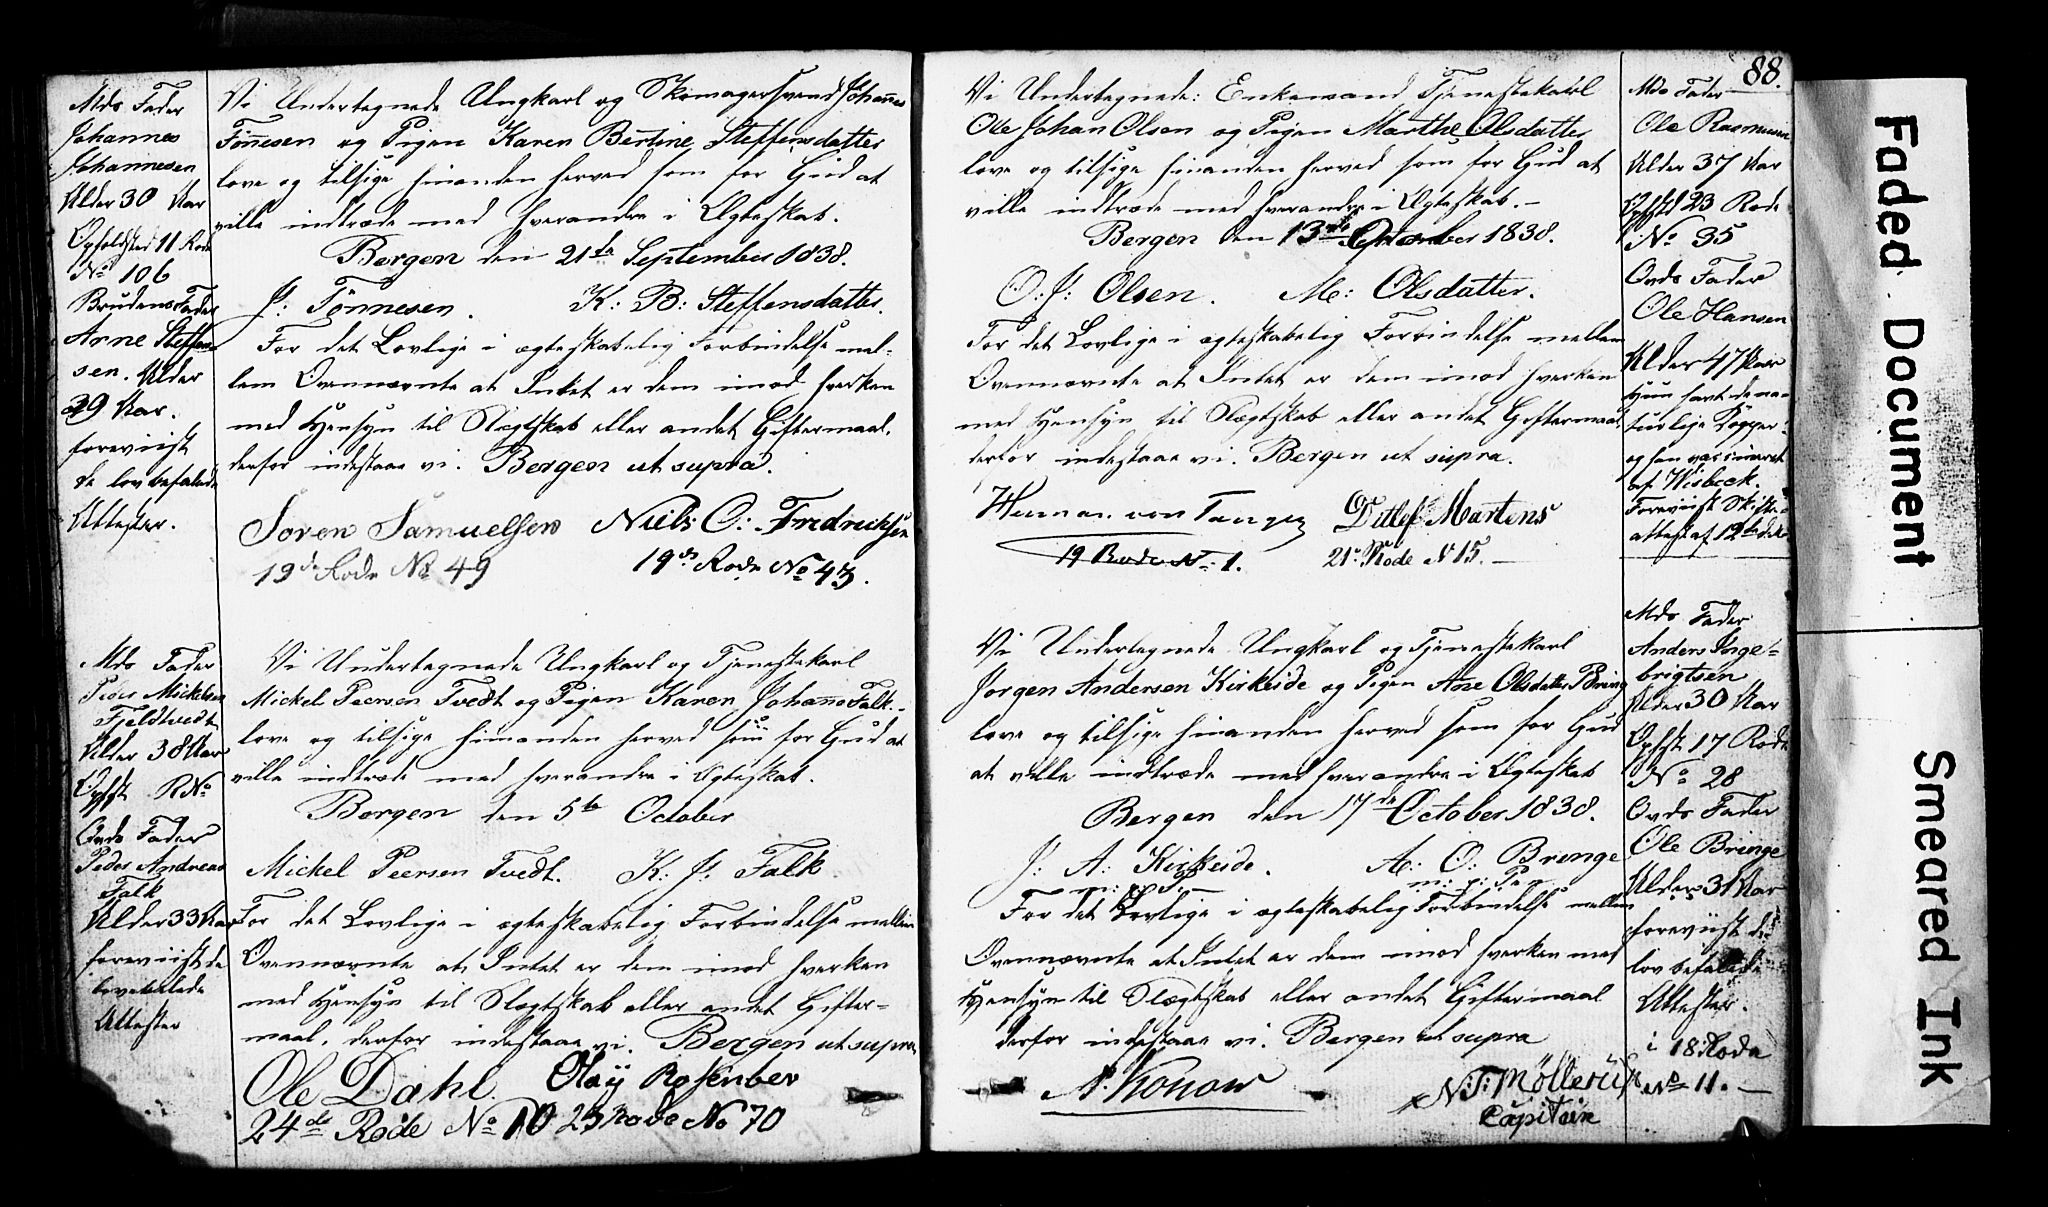 Mds Fader
Johannes
Johannesen
Alder 30 Aar
Opholdsted 11 Rode
No 106
Brudens Fader
Arne Steffen-
sen. Alder
29 Aar.
foreviist
de lovbefalede
Attester.
Vi Undertegnede Ungkarl og Skomagersvend Johannes
Tönnesen og Pigen Karen Bertine Steffensdatter
love og tilsige hinanden herved som for Gud at
ville indtræde med hverandre i Ægteskab.
Bergen den 21de September 1838.
J: Tönnesen. K: B: Steffensdatter.
For det Lovlige i ægteskabelig Forbindelse mel-
lem Ovennævnte at Intet er dem imod hverken
med Hensyn til Slægtskab eller andet Giftermaal,
derfor indestaae vi. Bergen ut supra.
Soren Samuelsen Niels O: Fredricksen
19de Rode No 49 19de Rode No 43.
Mds Fader
Peder Mickelsen
Fjeldtvedt
Alder 38 Aar
Ophst RNo
Qvds Fader
Peder Andreas
Falk
Alder 33 Aar
foreviist de
lovbefalede
Attester
Vi Undertegnede Ungkarl og Tjenestekarl
Mickel Peersen Tvedt og Pigen Karen Johanne Falk
love og tilsige hinanden herved som for Gud at
ville indtræde med hverandre i Ægteskab.
Bergen den 5te October
Mickel Peersen Tvedt. K: J: Falk.
For det Lovlige i ægteskabelig Forbindelse mellem
Ovennævnte at Intet er dem imod hverken
med Hensyn til Slægtskab eller andet Gifter-
maal, derfor indestaae vi. Bergen ut supra
Ole Dahl. Olay Rosenber
24de Rode No 10 23 Rode No 70
88.
Vi Undertegnede: Enkemand Tjenestekarl
Ole Johan Olsen og Pigen Marthe Olsdatter
love og tilsige hinanden herved som for Gud at
ville indtræde med hverandre i Ægteskab.-
Bergen den 13de October 1838.
O: J: Olsen. M: Olsdatter.
For det Lovlige i ægteskabelig Forbindelse mellem
Ovennævnte at Intet er dem imod hverken
med Hensyn til Slægtskab eller andet Giftermaal,
derfor indestaae vi. Bergen ut supra.
Herman von Tangen Ditlef Martens
19 Rode No 1. 21 Rode N 15.-
Mds Fader
Ole Rasmusen
Alder 37 Aar
Ophsted 23 Rode
No 35
Qvds Fader
Ole Hansen
Alder 47 Aar
Hun havt de na-
turlige Kopper
og han vaccineret
af Wisbeck.
Foreviist Skifte-
attest af 12te ds
Vi Undertegnede Ungkarl og Tjenestekarl
Jorgen Andersen Kirkeide og Pigen Ane Olsdatter Bring
love og tilsige hinanden herved som for Gud
at ville indtræde med hverandre i Ægteskab
Bergen den 17de October 1838.
J: A: Kirkeide. A: O: Bringe
m: p: P. m: p: Pen
For det Lovlige i ægteskabelig Forbindelse mellem
Ovennævnte at Intet er dem imod hverken med
Hensyn til Slægtskab eller andet Giftermaal
derfor indestaae vi. Bergen ut supra
A. Konow N: T: Möllerup
Capitain
Mds Fader
Anders Inge-
brigtsen
Alder 30 Aar
Ophst 17 Rode
No 28
Qvds Fader
Ole Bringe
Alder 31 Aar
foreviist de
lov befalede
Attester.
i 18 Rode
No 11.-
Faded Document
Smeared Ink